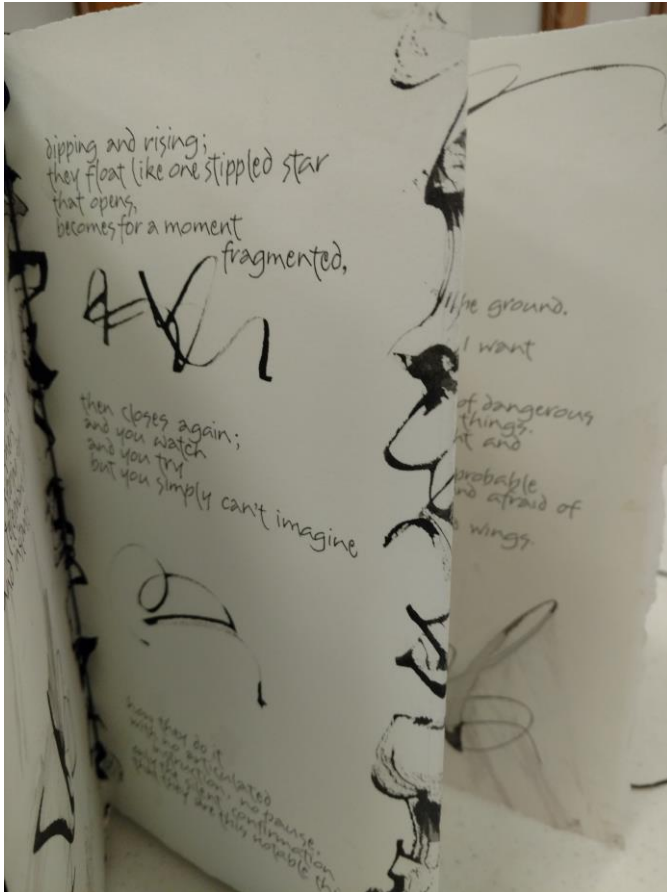 dipping and rising;
they float like one stippled star
that opens,
becomes for a moment
fragmented,
then closes again;
and you watch
and you try
but you simply can't imagine
how they do it
with no articulated
instruction, no pause,
only the silent confirmation
that they are this notable
the ground.
I want
of dangerous
things.
and
probable
afraid of
wings.